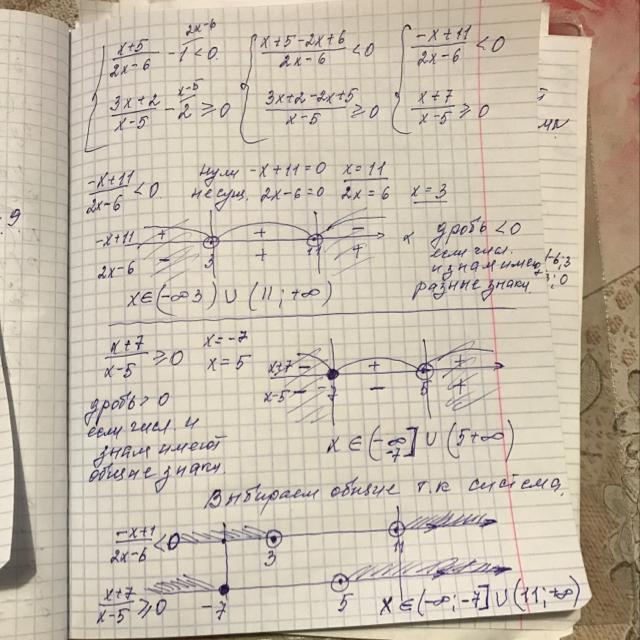 2x-6
x+5/2x-6 - 1 < 0 { x+5-2x+6/2x-6 < 0 { -x+11/2x-6 < 0
x-5
3x+2/x-5 - 2 ≥ 0 3x+2-2x+5/x-5 ≥ 0 x+7/x-5 ≥ 0
-x+11/2x-6 < 0 Нули -x+11=0 x=11
не сущ. 2x-6=0 2x=6 x=3
-x+11 + + - x
3 11
2x-6 - + +
дробь <0
если числ.
и знам имеют
разные знаки
x∈(-∞ 3) ∪ (11; +∞)
x+7/x-5 ≥ 0 x=-7
x=5
x+7 - + +
-7 5
x-5 - - +
дробь > 0
если числ. и
знам имеют
общие знаки.
x∈(-∞ -7] ∪ (5 +∞)
Выбираем общие т.к система.
-x+1/2x-6 < 0 3 11
x+7/x-5 ≥ 0 -7 5 x∈(-∞; -7] ∪ (11; +∞)
9